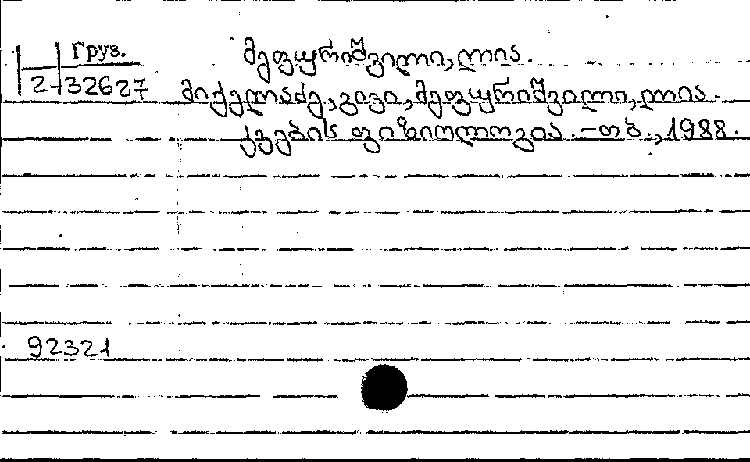 Груз.
2-32627
მეფყრიშვილი, ლია.
მიქელაძე, გივი, მეფყრიშვილი, ლია.
კვების ფიზიოლოგია. – თბ., 1988.
92321